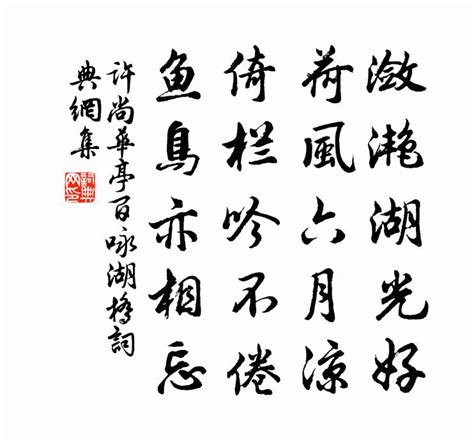 潋滟湖光好
荷風六月凉
倚栏吟不倦
鱼鳥亦相忘
許尚華亭百咏湖橋詞
典網集